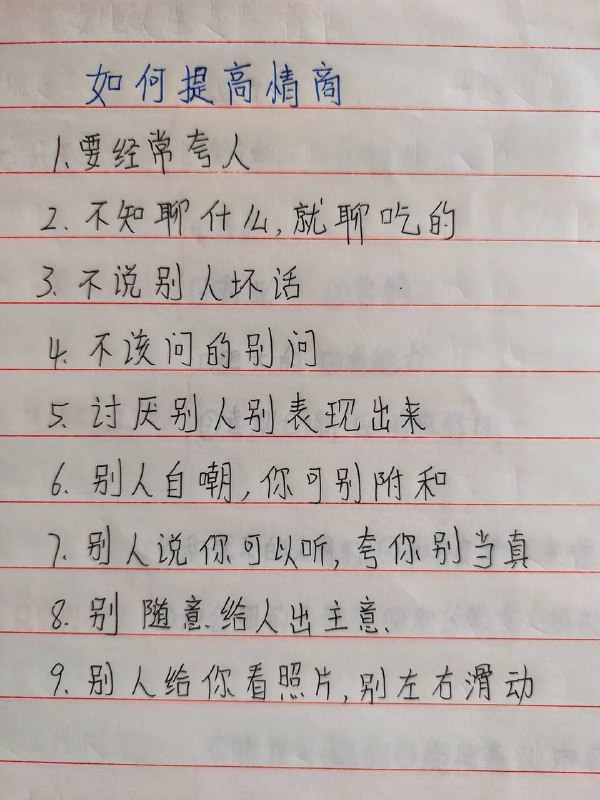 如何提高情商
1.要经常夸人
2.不知聊什么,就聊吃的
3.不说别人坏话
4.不该问的别问
5.讨厌别人别表现出来
6.别人自嘲,你可别附和
7.别人说你可以听,夸你别当真
8.别随意给人出主意.
9.别人给你看照片,别左右滑动